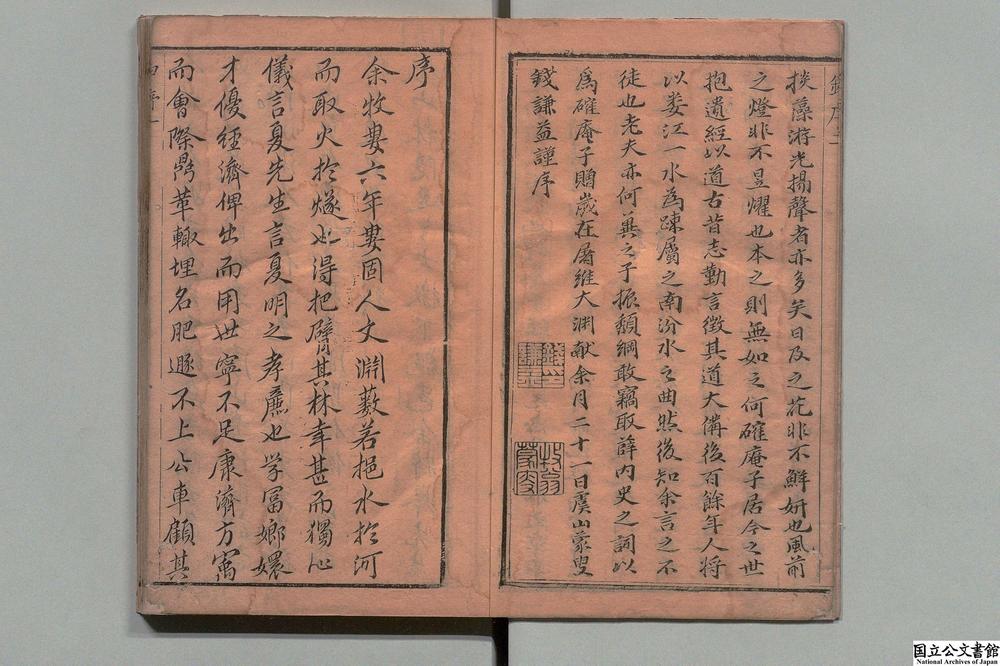 掞藻游光揚聲者亦多矣日及之花非不鮮妍也風前
之燈非不昱燿也本之則無如之何確庵子居今之世
抱遺經以道古昔志勤言徵其道大備後百餘年人將
以婁江一水為疎屬之南汾水之曲然後知余言之不
徒也老夫亦何冀之子振頹綱敢竊取薛內史之詞以
爲確庵子贈歲在屠維大淵獻余月二十一日虞山蒙叟
錢謙益謹序
序
余牧婁六年婁固人文淵藪若挹水於河
而取火於燧也得把臂其林幸甚而獨心
儀言夏先生言夏明之孝廉也学富嫏嬛
才優經濟俾出而用世寧不足康濟方㝢
而會際鼎革輙埋名肥遯不上公車顧其
国立公文書館
National Archives of Japan